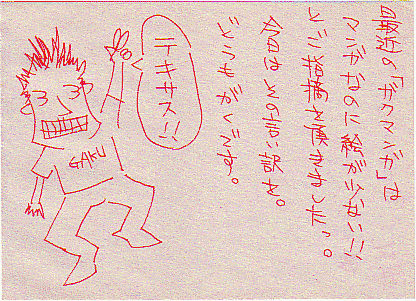 最近の「ガクマンガ」は
マンガなのに絵が少ない!!
とご指摘を頂きましたっ。
今日はその言い訳を。
どうもがくです。
テキサス!!
GAKU